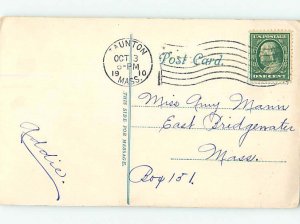 TAUNTON
OCT 3
6-PM
1910
MASS.
Post Card.
U.S. POSTAGE
ONE CENT
THIS SIDE FOR MESSAGE.
Miss Amy Mann
East Bridgewater
Mass.
Box 181.
Addie.